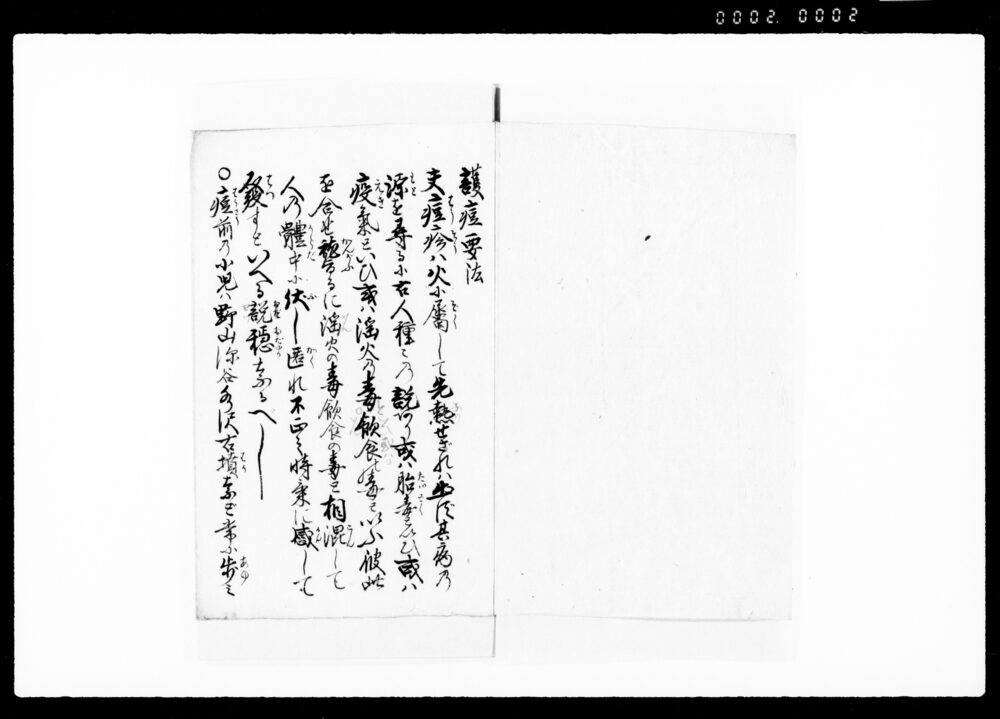 0002. 0002
護痘要法
夫痘疹ハ火に屬して先熱せざれハ出ず其病の
源を尋るに古人種々の説あり或ハ胎毒といひ或ハ
疫氣といひ或ハ淫火の毒飲食の毒といふ彼此
を合せ考るに淫火の毒飲食の毒と相混して
人の體中に伏し匿れ不正之時氣に感して
發すといへる説穏なるへし
○痘前の小児ハ野山深谷水沢古墳など常に歩ミ